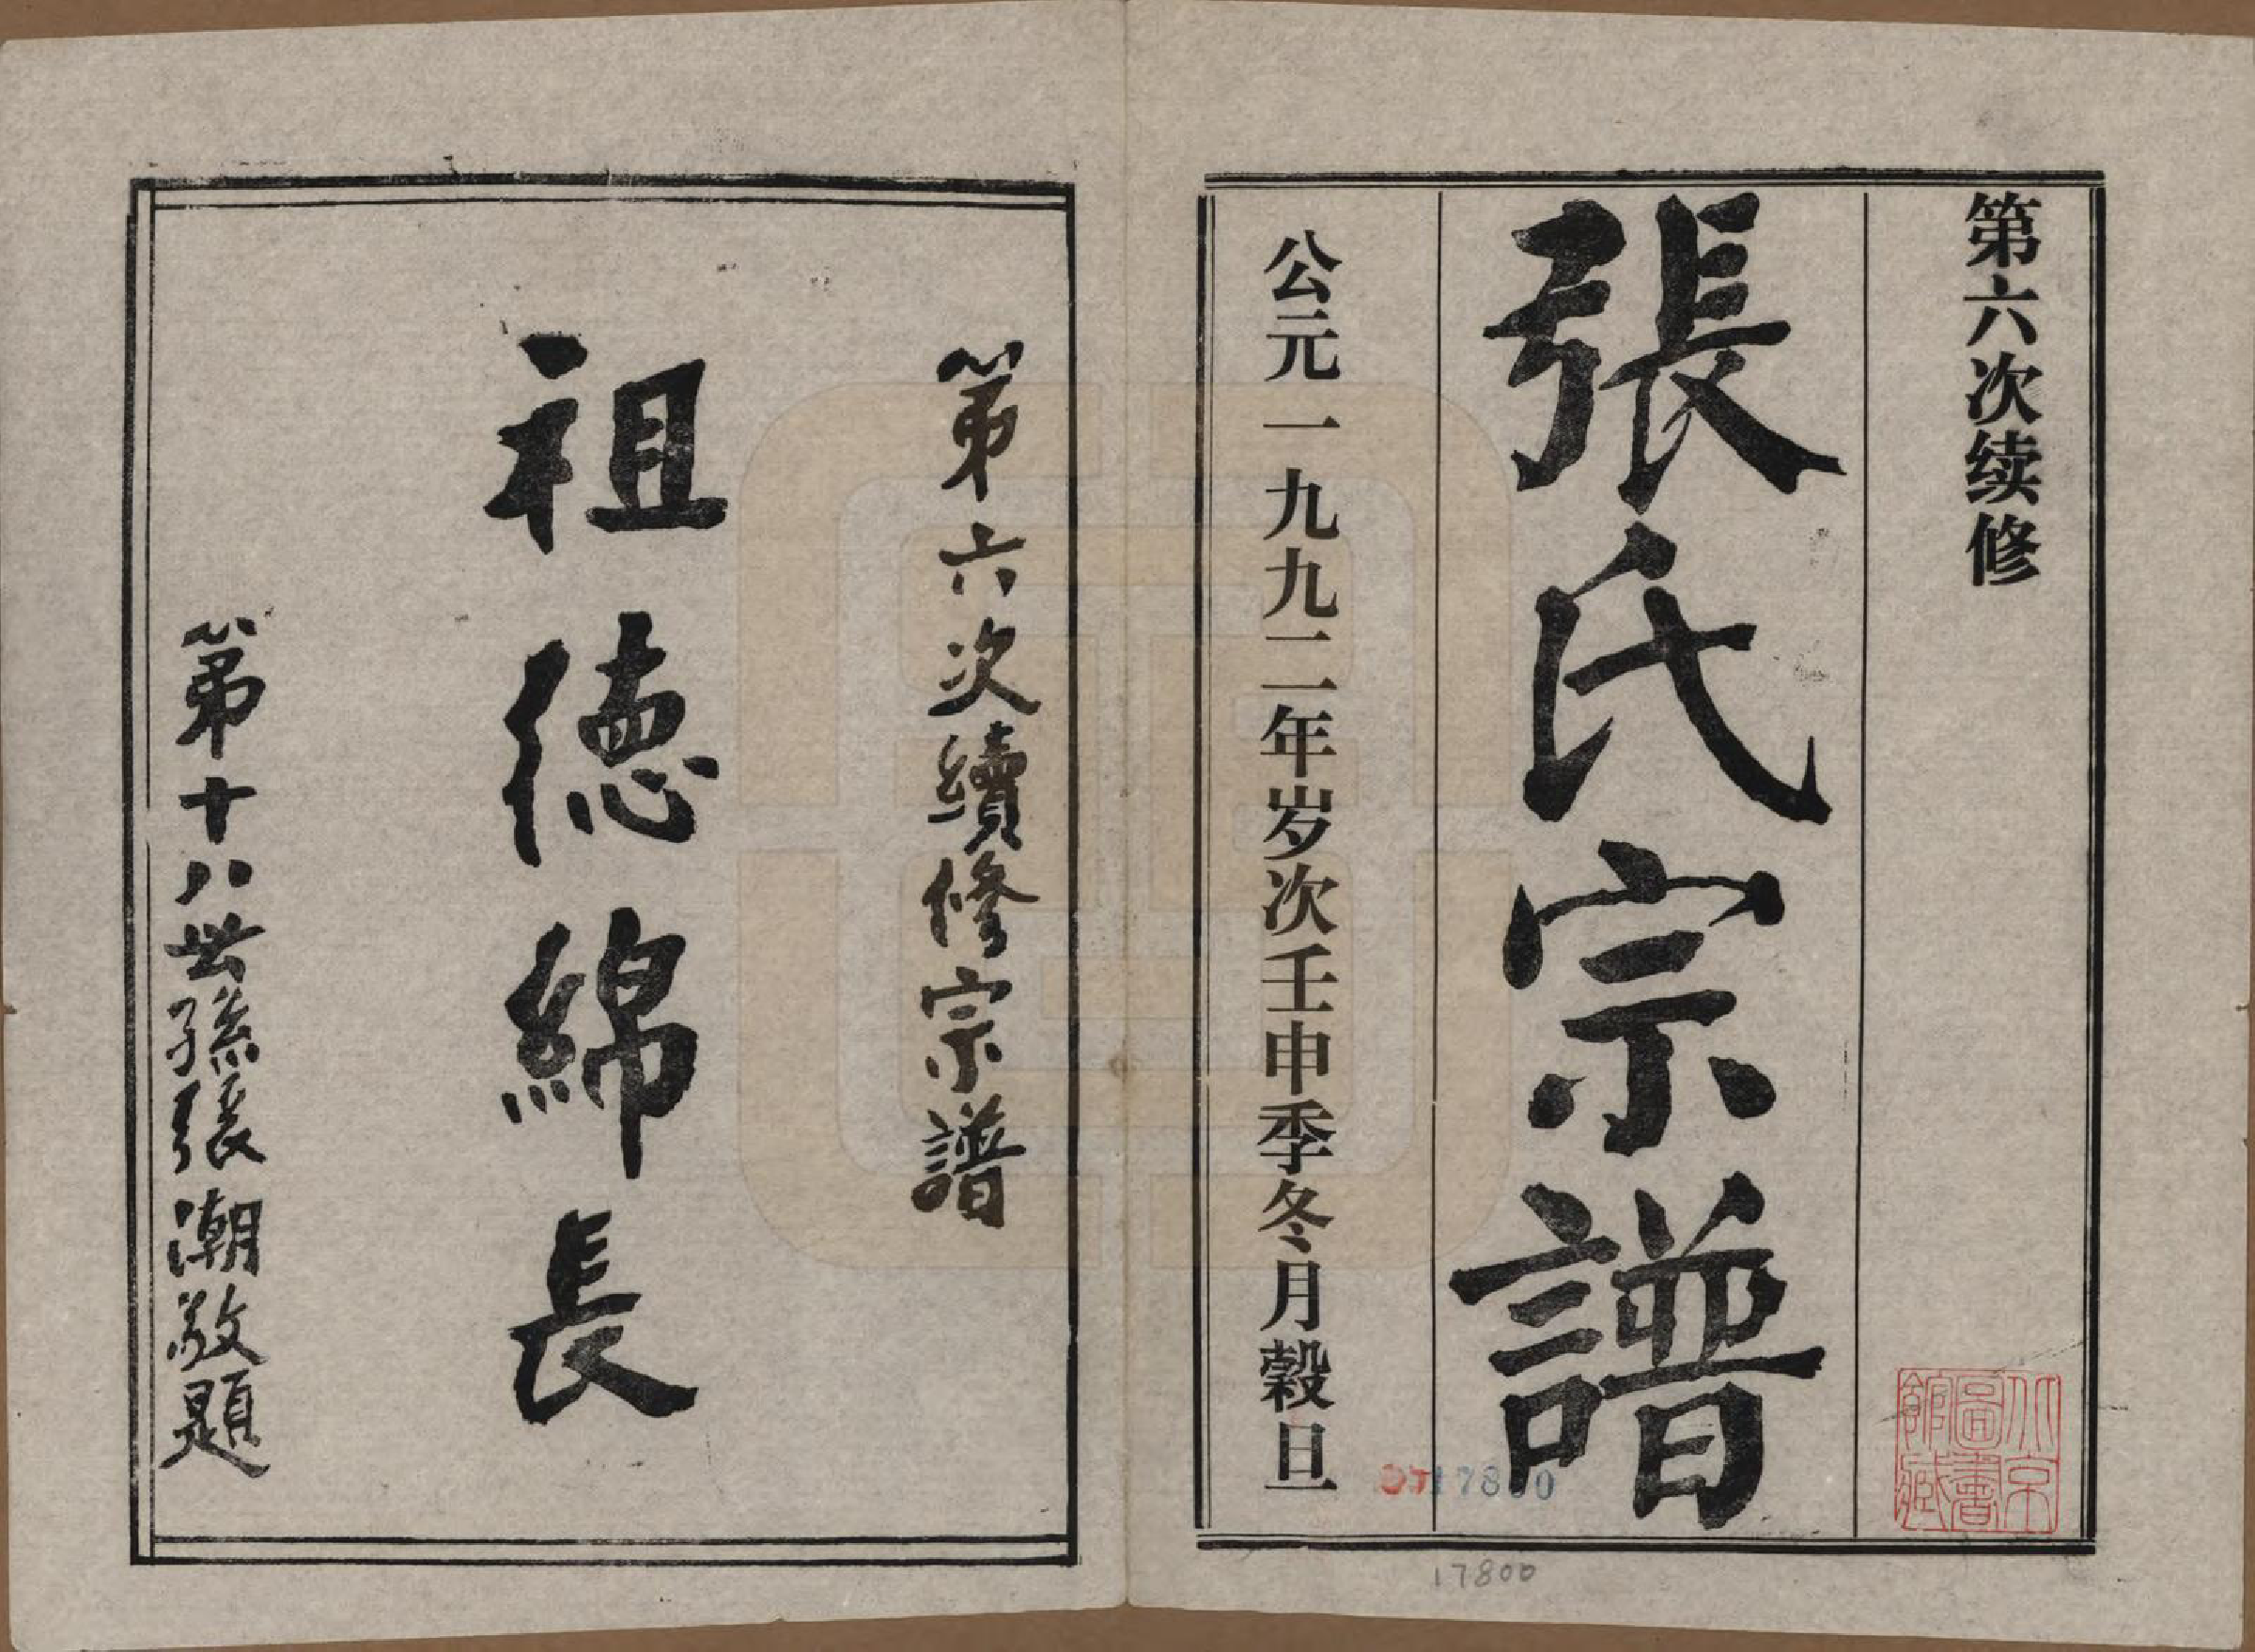 第六次续修
張氏宗譜
公元一九九二年岁次壬申季冬月穀旦
北京
圖書
館藏
17800
第六次續修宗譜
祖德綿長
第十八世孫張潮敬題